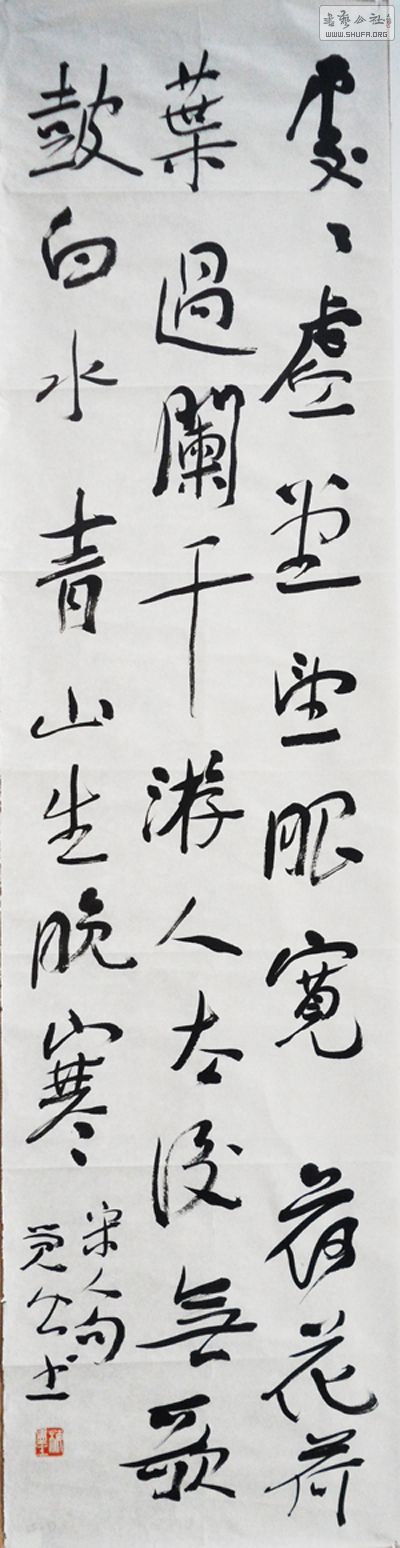 處〻虛堂望眼寬荷花荷
葉過闌干游人去後無歌
鼓白水青山生晚寒
宋人句
公書
書藝公社
WWW.SHUFA.ORG